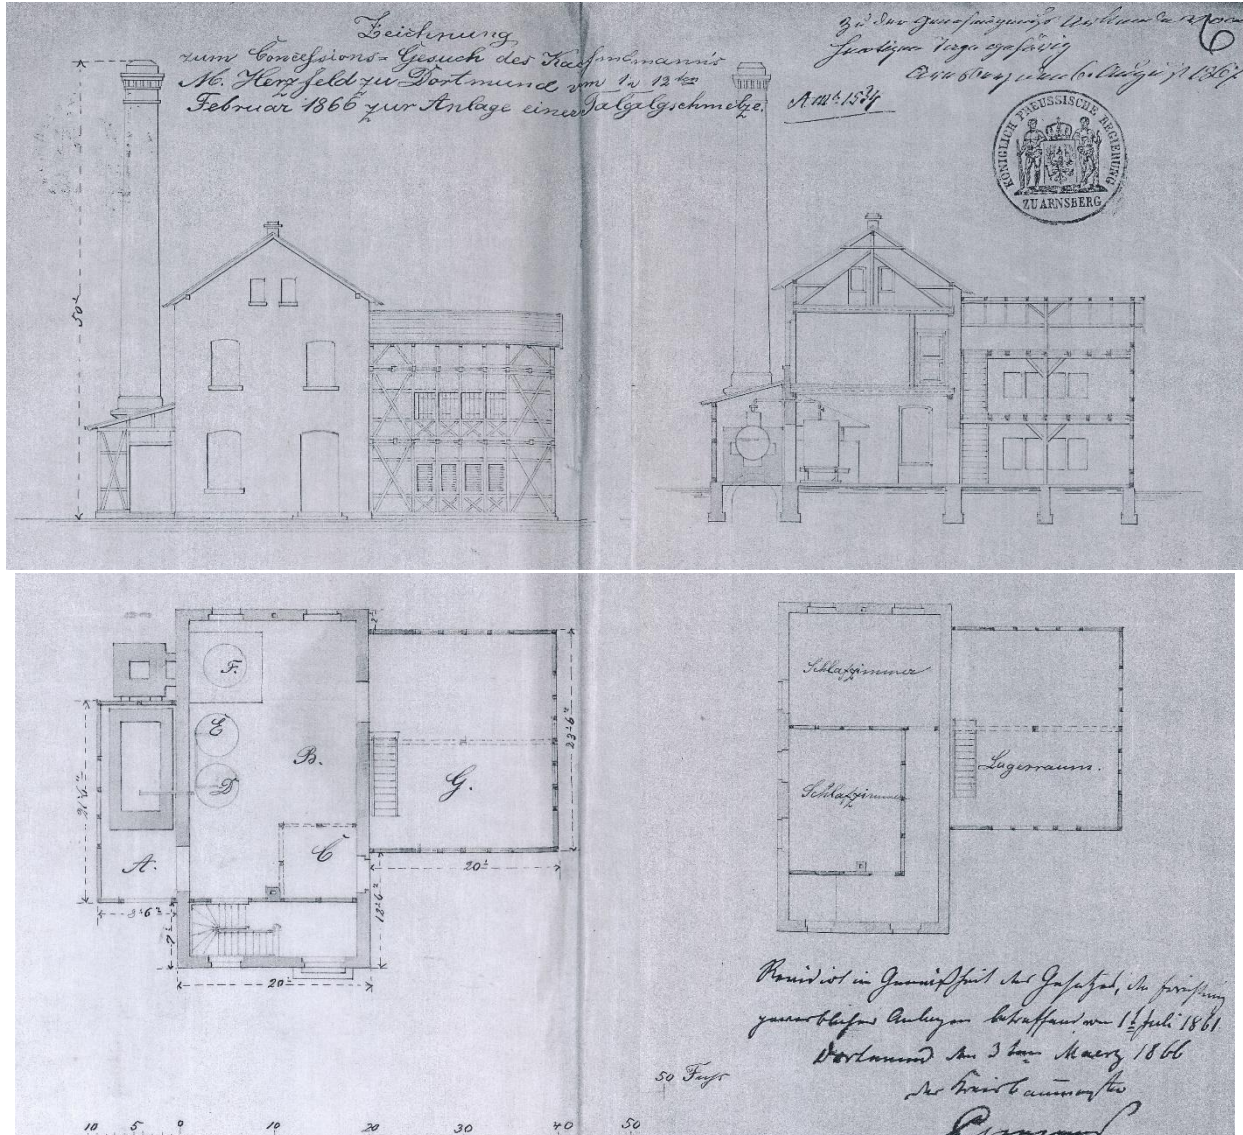 Zeichnung
zum Concessions-Gesuch des Kaufmann's
M. Herzfeld zu Dortmund vom 1 u 12ten
Februar 1866 zur Anlage einer Talgschmelze.
zu der
Arnsberg den 6. August 1867
A 1534
6
KÖNIGLICH PREUSSISCHE REGIERUNG
ZU ARNSBERG
50'
F.
E
D
B.
C
A.
G.
7'
23'6"
20'
8'6"
12'6"
7'
20'
Schlafzimmer
Schlafzimmer
Lagerraum.
Revidirt in Gemäßheit des Gesetzes, die
gewerblicher Anlagen betreffend vom 1t Juli 1861
Dortmund den 3ten Maerz 1866
der Kreisbaumeister
50 Fuss
10 5 0 10 20 30 40 50